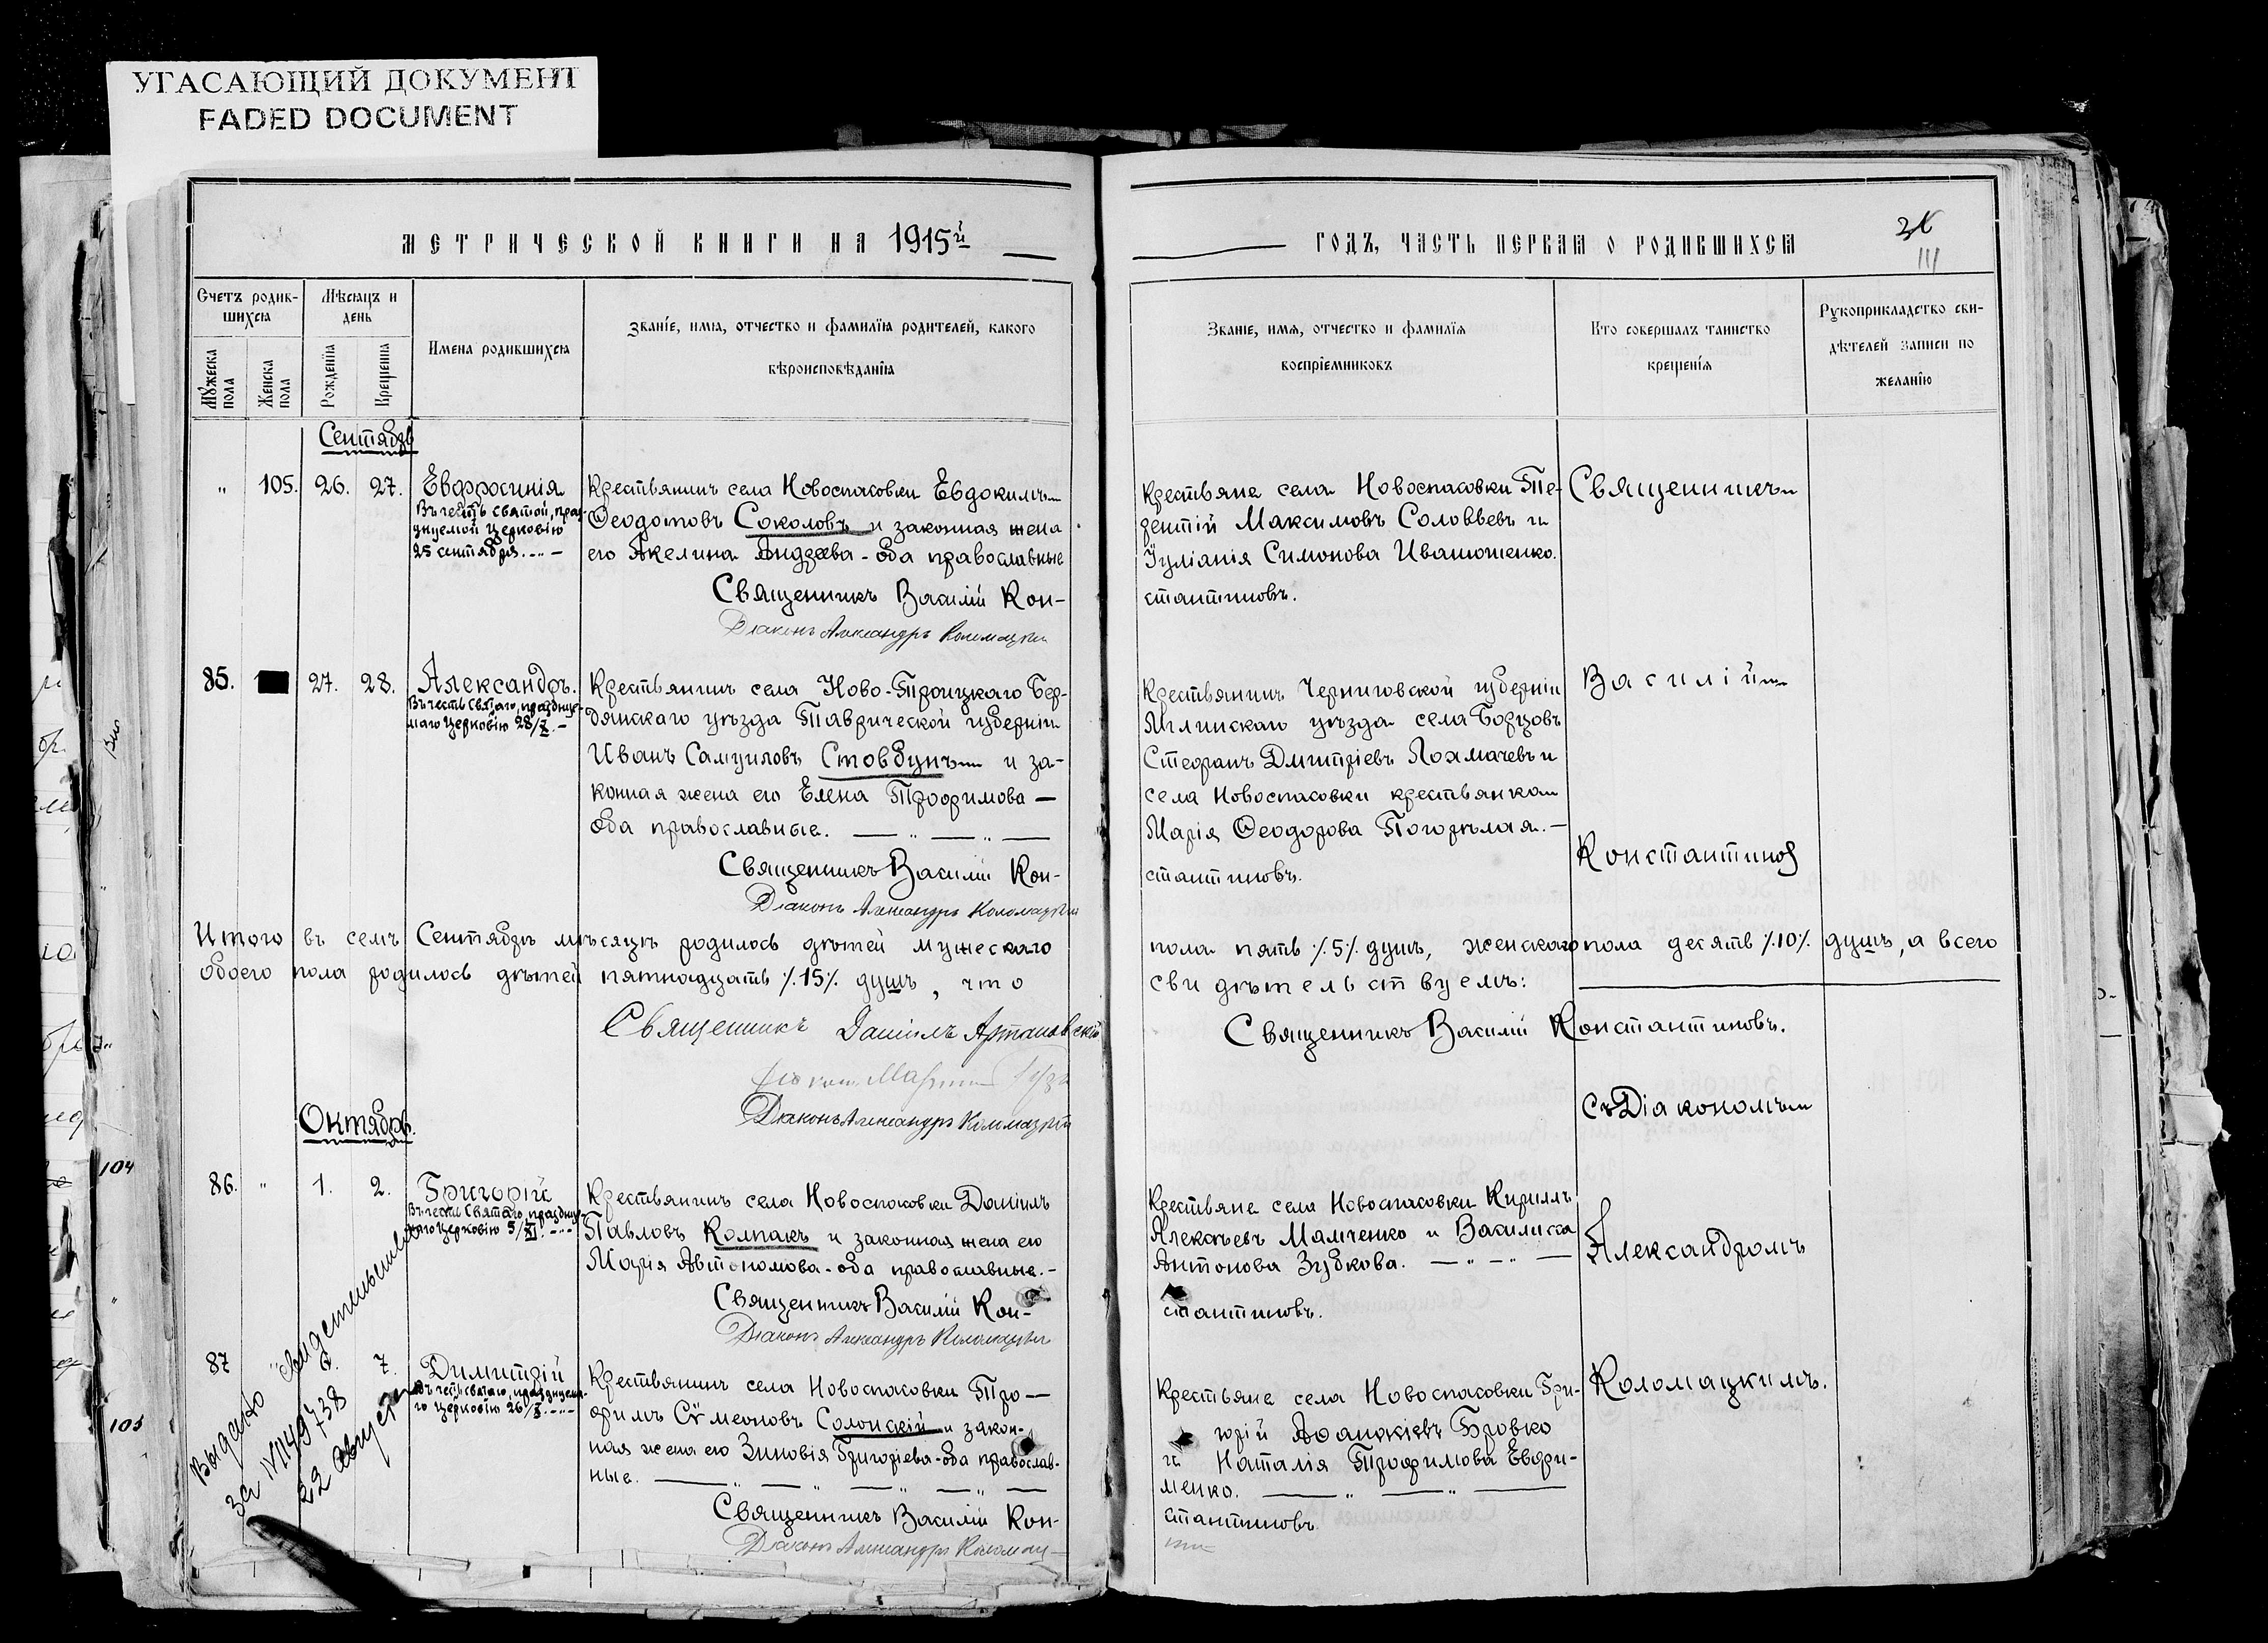 УГАСАЮЩИЙ ДОКУМЕНТ
FADED DOCUMENT
МЕТРИЧЕСКОЙ КНИГИ НА 1915й
Счетъ родив-
шихся
Мѣсяцъ и
день
Мужеска
пола
Женска
пола
Рожденія
Крещенія
Имена родившихся
Званіе, имя, отчество и фамилія родителей, какого
вѣроисповѣданія
Сентябрь
" 105. 26. 27. Евфросинія
Въ честь святой, праз-
днуемой Церковію
25 сентября.
Крестьянинъ села Новоспасовки Евдокимъ
Ѳеодотовъ Соколовъ и законная жена
его Акелина Андреева - оба православные
Священникъ Василій Кон-
Діаконъ Александръ Коломацкій
85. 27. 28. Александръ.
Въ честь Святаго, празднуе-
маго Церковію 28/X.
Крестьянинъ села Ново-Троицкаго Бер-
дянскаго уѣзда Таврической губерніи
Иванъ Самуиловъ Стовбунъ и за-
конная жена его Елена Трофимова —
оба православные.
Священникъ Василій Кон-
Діаконъ Александръ Коломацкій
Итого въ семъ Сентябрѣ мѣсяцѣ родилось дѣтей мужескаго
обоего пола родилось дѣтей пятнадцать ٪15٪ душъ, что
Священникъ Даніилъ Артановскій
Діаконъ Александръ Коломацкій
Октябрь.
86. " 1. 2. Григорій
Въ честь Святаго, праздуе-
маго Церковію 5/XI.
Крестьянинъ села Новоспасовки Даніилъ
Павловъ Колпакъ и законная жена его
Марія Автономова - оба православные.-
Священникъ Василій Кон-
Діаконъ Александръ Коломацкій
87 7. Димитрій
Въ честь святаго, празднуема-
го Церковію 26/X.
Крестьянинъ села Новоспасовки Тро-
фимъ Сѵмеоновъ Солонскій и закон-
ная жена его Зиновія Григоріева - оба православ-
ные.
Священникъ Василій Кон-
Діаконъ Александръ Коломац-
Выдано свидетельство
за №
22 августа
104
105
ГОДЪ, ЧАСТЬ ПЕРВАЯ О РОДИВШИХСЯ
111
Званіе, имя, отчество и фамилія
воспріемниковъ
Кто совершалъ таинство
крещенія
Рукоприкладство сви-
дѣтелей записи по
желанію
Крестьяне села Новоспасовки Те-
рентій Максимовъ Соловьевъ и
Іуліанія Симонова Иванюшенко.
стантиновъ.
Крестьянинъ Черниговской губерніи
Мглинскаго уѣзда села Борцовъ
Стефанъ Дмитріевъ Лохмачевъ и
села Новоспасовки крестьянка
Марія Ѳеодорова Погорѣлая.-
стантиновъ.
пола пять ٪5٪ душъ, женскаго пола десять ٪10٪ душъ, а всего
свидѣтельствуемъ:
Священникъ Василій Константиновъ.
Крестьяне села Новоспасовки Кириллъ
Алексѣевъ Мамченко и Василисса
Антонова Зубкова.
стантиновъ.
Крестьяне села Новоспасовки Гри-
горій Аѳанасіевъ Бровко
и Наталія Трофимова Евфи-
менко.
стантиновъ
Священникъ
Василій
Константинов
Съ Діакономъ
Александромъ
Коломацкимъ.